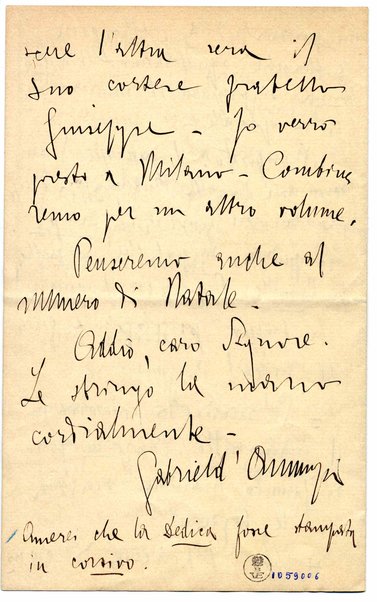 scere l'altra sera il
suo cortese fratello
Giuseppe - Io verrò
presto a Milano - Combine
remo per un altro volume.
Penseremo anche al
numero di Natale -
Addio, caro Signore.
Le stringo la mano
cordialmente -
Gabriel d'Annunzio
Amerei che la Dedica fosse stampata
in corsivo.
1059006